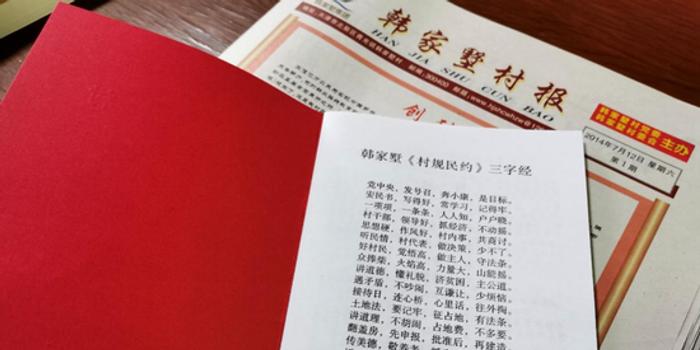 韩家墅村报
HAN JIA SHU CUN BAO
邮编：300400
韩家墅村党委
韩家墅村委会 主办
2014年7月12日 星期六
第1期
韩家墅《村规民约》三字经
党中央，发号召，奔小康，是目标。
安民书，写得好，常学习，记得牢。
一项项，一条条，人人知，户户晓。
村干部，领导好，抓经济，不动摇。
思想硬，作风好，村内事，共商讨。
听民情，村代表，做决策，少不了。
好村民，觉悟高，做主人，守法条。
众捧柴，火焰高，力量大，山能摇。
讲道德，懂礼貌，济贫困，主公道。
遇矛盾，不吵闹，互谦让，少烦恼。
接待日，连心桥，心里话，往外掏。
土地法，要记牢，征占地，有法条。
讲道理，不胡闹，占地费，不多要。
翻盖房，先申报，批准后，再建造。
传美德，敬养老